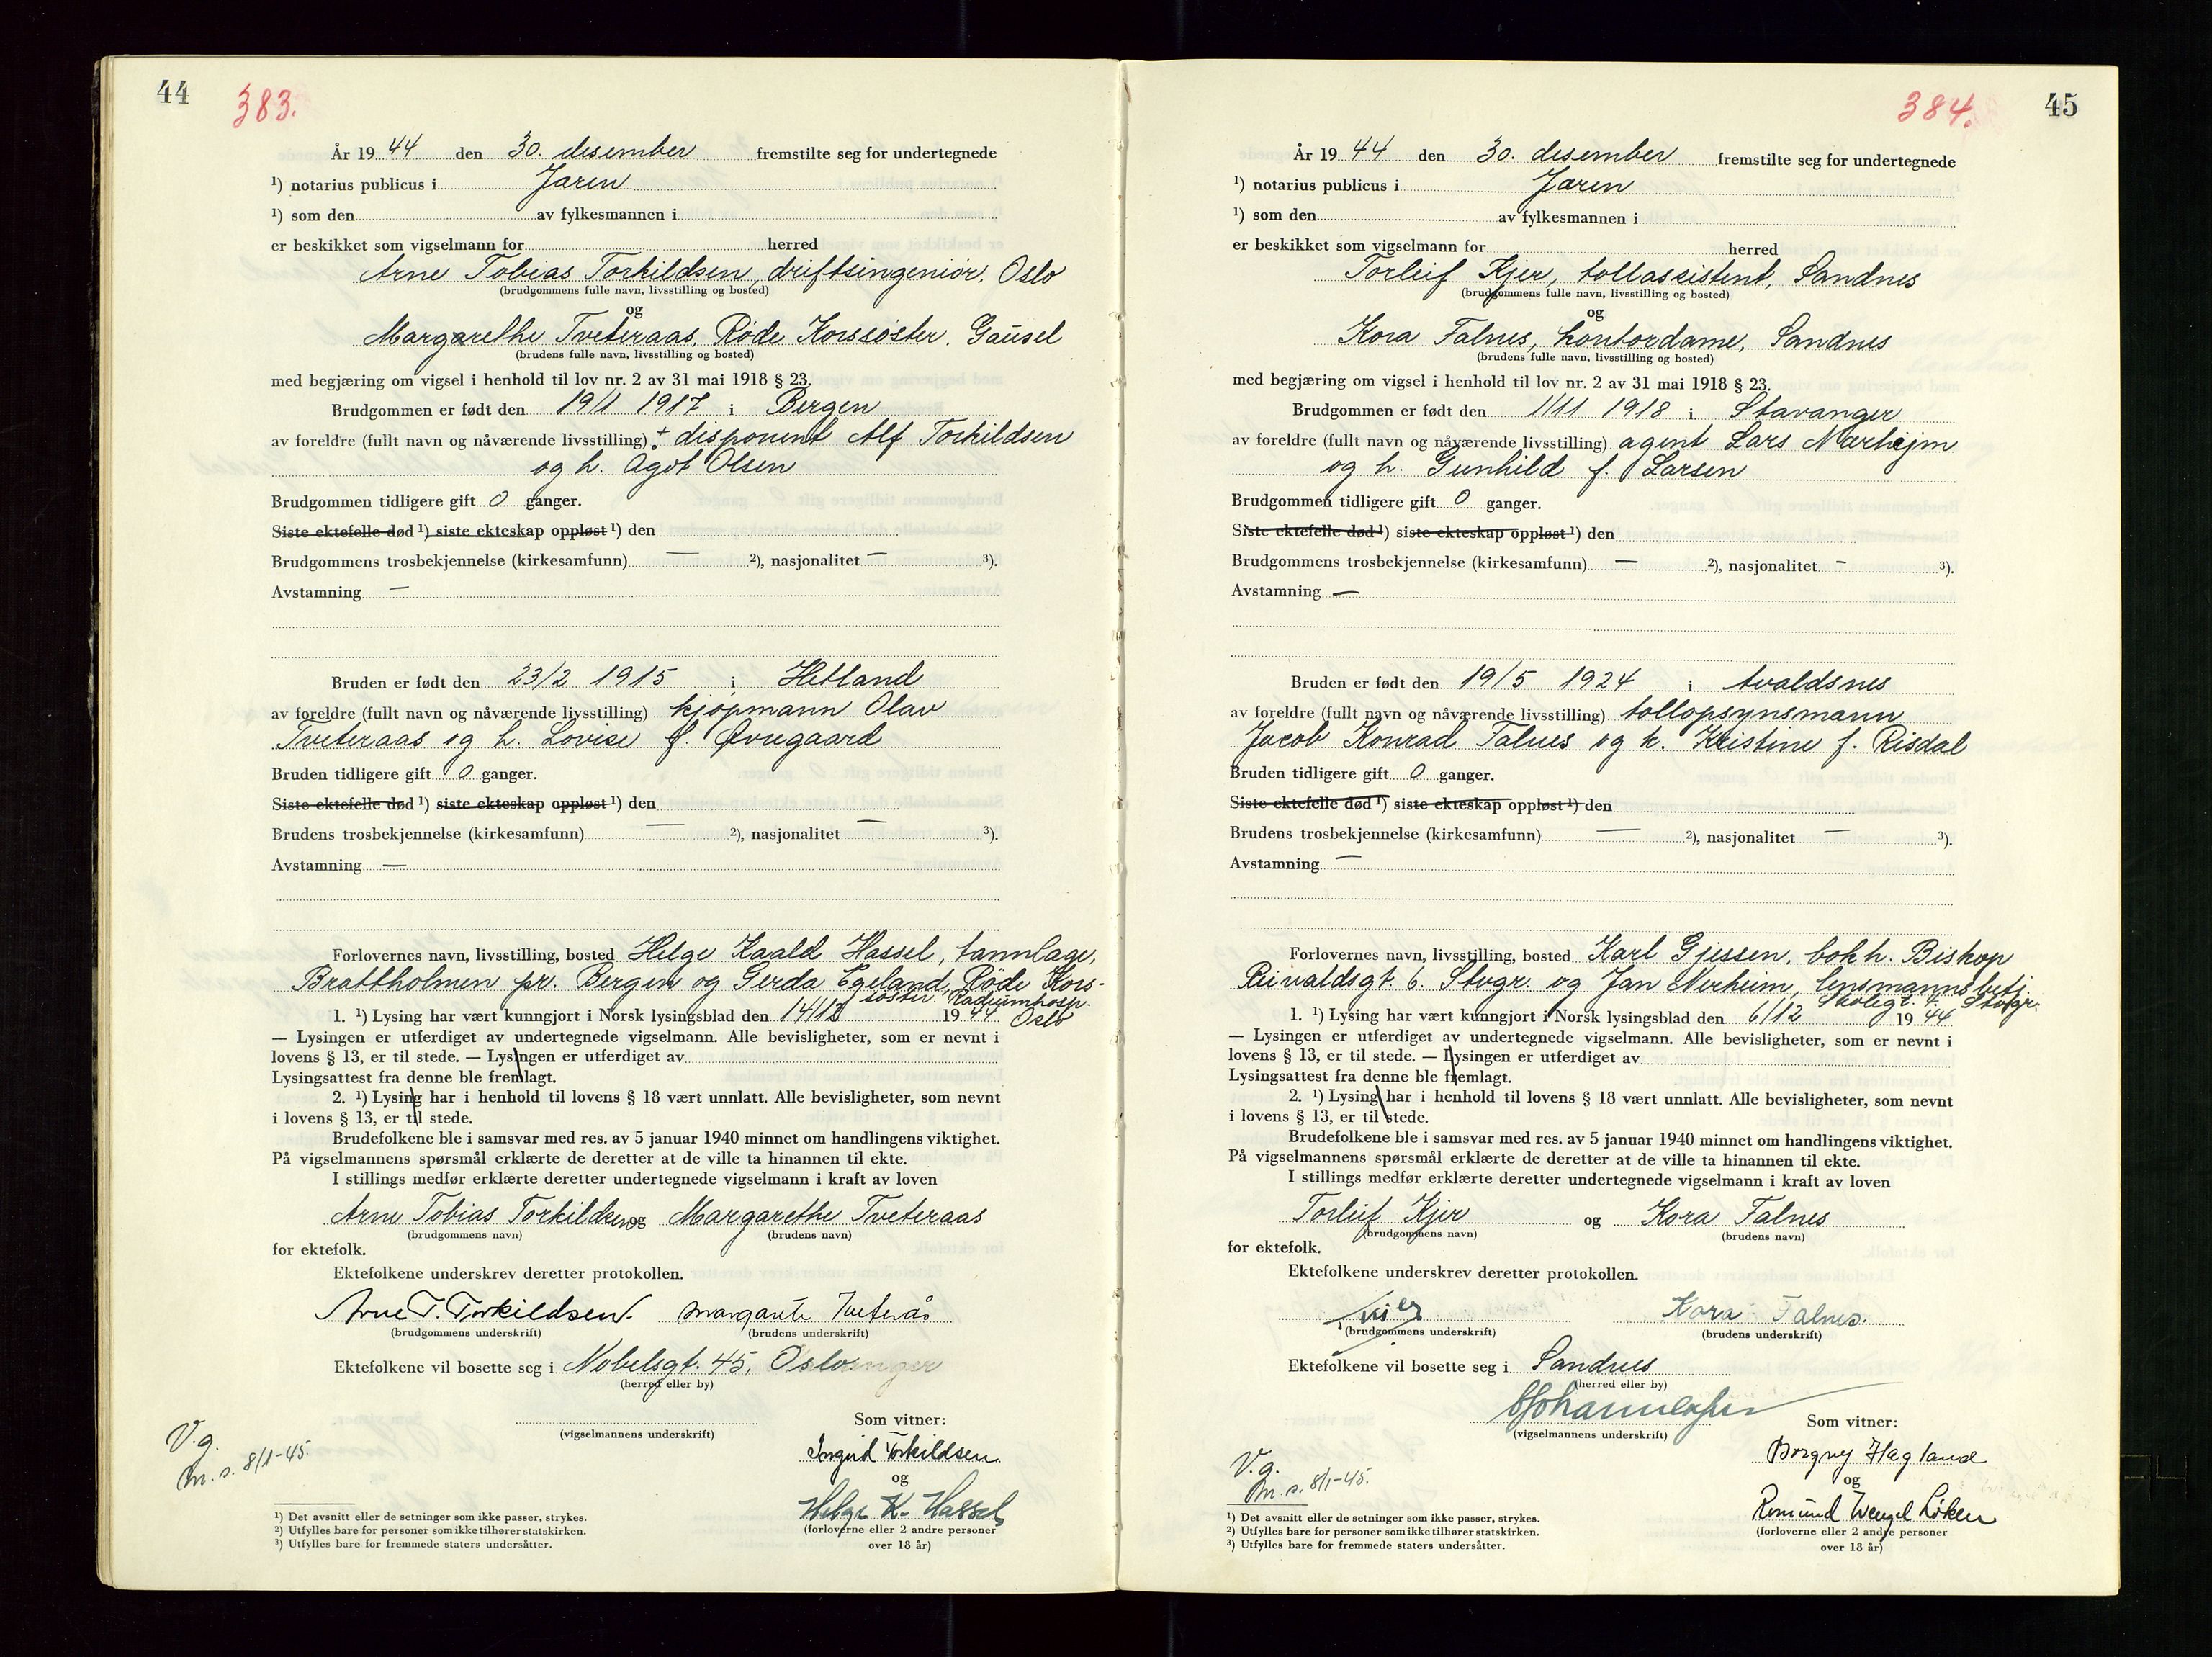 44
383.
År 19 44 den 30. desember fremstilte seg for undertegnede
¹) notarius publicus i Jæren
¹) som den av fylkesmannen i
er beskikket som vigselmann for herred
Arne Tobias Torkildsen, driftsingeniør, Oslo
(brudgommens fulle navn, livsstilling og bosted)
og
Margarethe Tveteraas, Røde Korssøster, Gausel
(brudens fulle navn, livsstilling og bosted)
med begjæring om vigsel i henhold til lov nr. 2 av 31 mai 1918 § 23.
Brudgommen er født den 19/1 1917 i Bergen
av foreldre (fullt navn og nåværende livsstilling) + disponent Alf Torkildsen
og h. Ågot Olsen
Brudgommen tidligere gift 0 ganger.
Siste ektefelle død ¹) siste ekteskap oppløst ¹) den
Brudgommens trosbekjennelse (kirkesamfunn) — ²), nasjonalitet — ³).
Avstamning —
Bruden er født den 23/2 1915 i Hetland
av foreldre (fullt navn og nåværende livsstilling) kjøpmann Olav
Tveteraas og h. Lovise f. Øvregaard
Bruden tidligere gift 0 ganger.
Siste ektefelle død ¹) siste ekteskap oppløst ¹) den
Brudens trosbekjennelse (kirkesamfunn) — ²), nasjonalitet — ³).
Avstamning —
Forlovernes navn, livsstilling, bosted Helge Kaald Hassel, tannlæge,
Brattholmen pr. Bergen og Gerda Egeland, Røde Kors-
søster. Radiumhosp.
Oslo
1. ¹) Lysing har vært kunngjort i Norsk lysingsblad den 14/12 19 44
— Lysingen er utferdiget av undertegnede vigselmann. Alle bevisligheter, som er nevnt i
lovens § 13, er til stede. — Lysingen er utferdiget av
Lysingsattest fra denne ble fremlagt.
2. ¹) Lysing har i henhold til lovens § 18 vært unnlatt. Alle bevisligheter, som nevnt
i lovens § 13, er til stede.
Brudefolkene ble i samsvar med res. av 5 januar 1940 minnet om handlingens viktighet.
På vigselmannens spørsmål erklærte de deretter at de ville ta hinannen til ekte.
I stillings medfør erklærte deretter undertegnede vigselmann i kraft av loven
Arne Tobias Torkildsen og Margarethe Tveteraas
(brudgommens navn) (brudens navn)
for ektefolk.
Ektefolkene underskrev deretter protokollen.
Arne T. Torkildsen. Margarete Tveterås
(brudgommens underskrift) (brudens underskrift)
Ektefolkene vil bosette seg i Nobelsgt. 45, Oslo
(herred eller by)
(vigselmannens underskrift)
Som vitner:
Ingrid Torkildsen
og
Helge K. Hassel
(forloverne eller 2 andre personer
over 18 år)
V.g.
m. s. 8/1-45.
¹) Det avsnitt eller de setninger som ikke passer, strykes.
²) Utfylles bare for personer som ikke tilhører statskirken.
³) Utfylles bare for fremmede staters undersåtter.
384.
45
År 19 44 den 30. desember fremstilte seg for undertegnede
¹) notarius publicus i Jæren
¹) som den av fylkesmannen i
er beskikket som vigselmann for herred
Torleif Kjer, tollassistent, Sandnes
(brudgommens fulle navn, livsstilling og bosted)
og
Kora Falnes, kontordame, Sandnes
(brudens fulle navn, livsstilling og bosted)
med begjæring om vigsel i henhold til lov nr. 2 av 31 mai 1918 § 23.
Brudgommen er født den 1/11 1918 i Stavanger
av foreldre (fullt navn og nåværende livsstilling) agent Lars Mærhejm
og h. Gunhild f. Larsen
Brudgommen tidligere gift 0 ganger.
Siste ektefelle død ¹) siste ekteskap oppløst ¹) den
Brudgommens trosbekjennelse (kirkesamfunn) — ²), nasjonalitet - ³).
Avstamning —
Bruden er født den 19/5 1924 i Avaldsnes
av foreldre (fullt navn og nåværende livsstilling) tollopsynsmann
Jacob Konrad Falnes og h. Kristine f. Risdal
Bruden tidligere gift 0 ganger.
Siste ektefelle død ¹) siste ekteskap oppløst ¹) den
Brudens trosbekjennelse (kirkesamfunn) — ²), nasjonalitet — ³).
Avstamning —
Forlovernes navn, livsstilling, bosted Karl Gjessen, bokh. Bishop
Reivaldsgt. 6. Stvgr. og Jan Nerheim, lensmannsbetj.
Skolegt. 4. Stvgr.
1. ¹) Lysing har vært kunngjort i Norsk lysingsblad den 6/12 19 44
— Lysingen er utferdiget av undertegnede vigselmann. Alle bevisligheter, som er nevnt i
lovens § 13, er til stede. — Lysingen er utferdiget av
Lysingsattest fra denne ble fremlagt.
2. ¹) Lysing har i henhold til lovens § 18 vært unnlatt. Alle bevisligheter, som nevnt
i lovens § 13, er til stede.
Brudefolkene ble i samsvar med res. av 5 januar 1940 minnet om handlingens viktighet.
På vigselmannens spørsmål erklærte de deretter at de ville ta hinannen til ekte.
I stillings medfør erklærte deretter undertegnede vigselmann i kraft av loven
Torleif Kjer og Kora Falnes
(brudgommens navn) (brudens navn)
for ektefolk.
Ektefolkene underskrev deretter protokollen.
Kora Falnes.
(brudgommens underskrift) (brudens underskrift)
Ektefolkene vil bosette seg i Sandnes
(herred eller by)
(vigselmannens underskrift)
Som vitner:
Borgny Hagland
og
Romund Wengel Löken
(forloverne eller 2 andre personer
over 18 år)
V.g.
m. s. 8/1-45.
¹) Det avsnitt eller de setninger som ikke passer, strykes.
²) Utfylles bare for personer som ikke tilhører statskirken.
³) Utfylles bare for fremmede staters undersåtter.